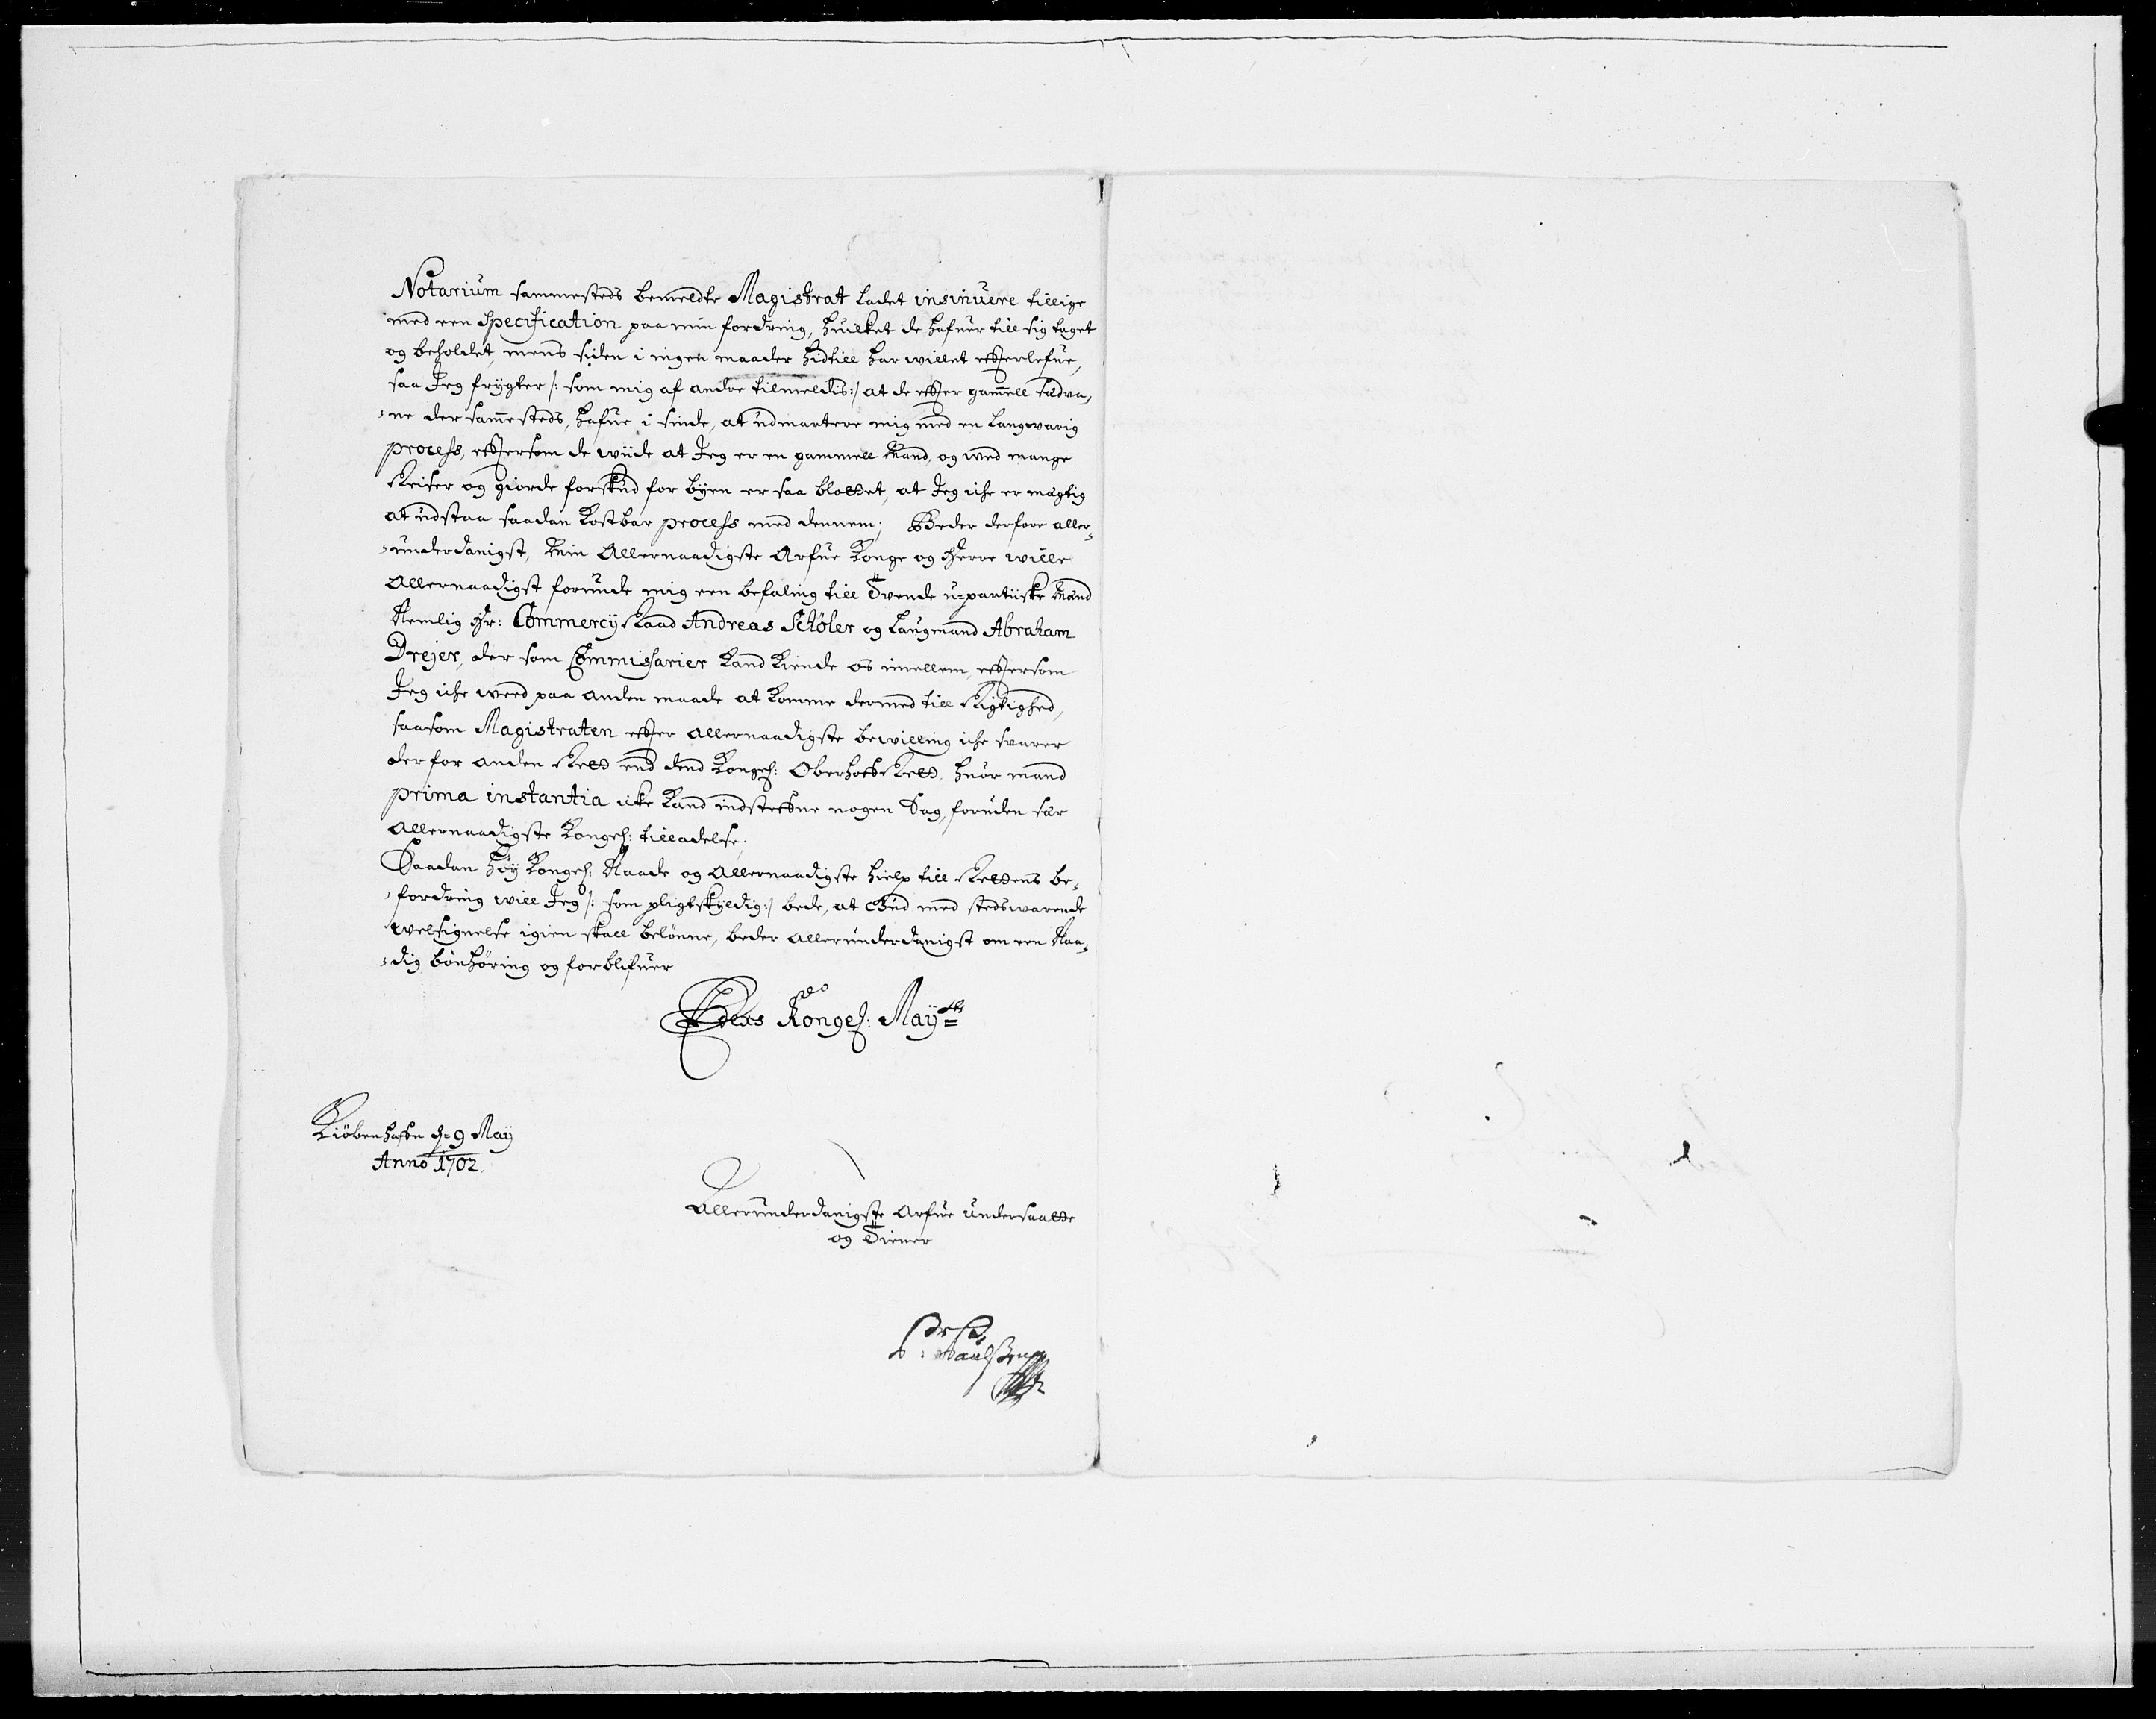 Notarium sammesteds bemeldte Magistrat ladet insinuere tillige
med een Specification paa min fordring, huilket de hafuer till sig taget
og beholdet, mens siden i ingen maader hidtill har willet efterlefue,
saa Jeg frygter /: som mig af andre tilmeldis :/ at de efter gamell sædva-
-ne der samesteds, hafue i sinde, at udmartere mig med en langwarig
process, eftersom de wiide at Jeg er en gammell Mand, og wed mange
Reiser og giorde forskud for byen er saa blottet, at Jeg iche er mægtig
at udstaa saadan Kostbar process med dennem; Beder derfore aller-
-underdanigst, Min Allernaadigste Arfue Konge og Herre wille
Allernaadigst forunde mig een befaling till Tvende u-partiiske Mænd
Nemlig Hr: Commercy Raad Andreas Schøler og Laugmand Abraham
Drejer, der som Commissarier Kand Kiende os imellem, eftersom
Jeg iche weed paa anden maade at Komme dermed till Rigtighed,
saasom Magistraten efter allernaadigste bewilling iche svarer
derfor anden Rett end dend Kongel: Oberhoff Rett, huor mand
prima instantia icke Kand indsteffne nogen Sag, foruden sær
Allernaadigste Kongel: tilladelse;
Saadan høy Kongel: Naade og Allernaadigste hielp till Rettens be-
-fordring will Jeg /: som pligtskyldig :/ bede, at Gud med stedswarende
welsignelse igien skall belønne, beder allerunderdanigst om een Naa-
-dig bønhøring og forblifuer
Eders Kongel: Mayts
Kiøbenhaffn d: 9 May
Anno 1702.
Allerunderdanigste Arfue undersaatte
og Tiener
Paulsen